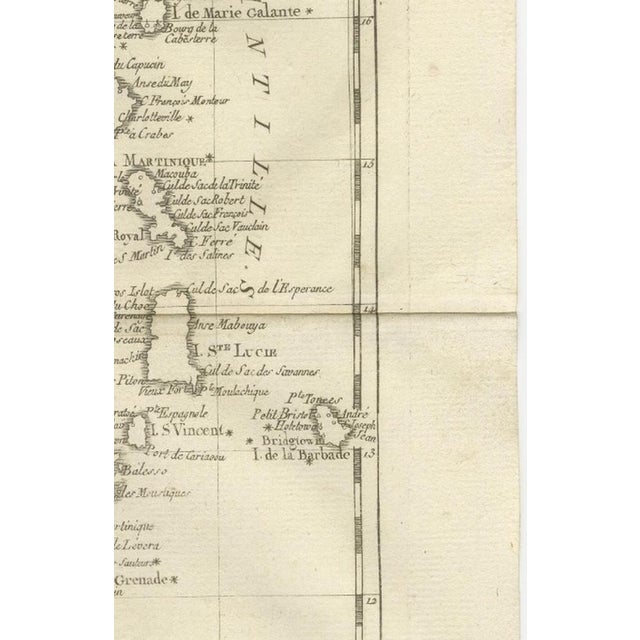 I. de Marie Galante
Bourg de la
Cabésterre
16
du Capucin
Anse du May
C. François Montour
Charlotteville
Pte. à Crabes
ANTILLES.
MARTINIQUE
15
Macouba
Cul de Sac de la Trinité
Cul de Sac Robert
Cul de Sac François
Cul de Sac Vauclain
Royal
C. Ferre
I. des Salines
S. Martin
Cul de Sac de l'Esperance
ros Islet
14
du Choc
Anse Mabouya
de Sac
I. STE. LUCIE
Cul de Sac des Savannes
Piton
Vieux Fort
Pte. Moulachique
Pte. Tonces
Pte. Espagnole
Petit Bristol
André
Holetown
S. Joseph
I. S. Vincent
Jean
Bridgtown
Port de Cariacou
I. de la Barbade
13
Balesso
les Moustiques
artinique
de Levera
Sauteurs
Grenade
12